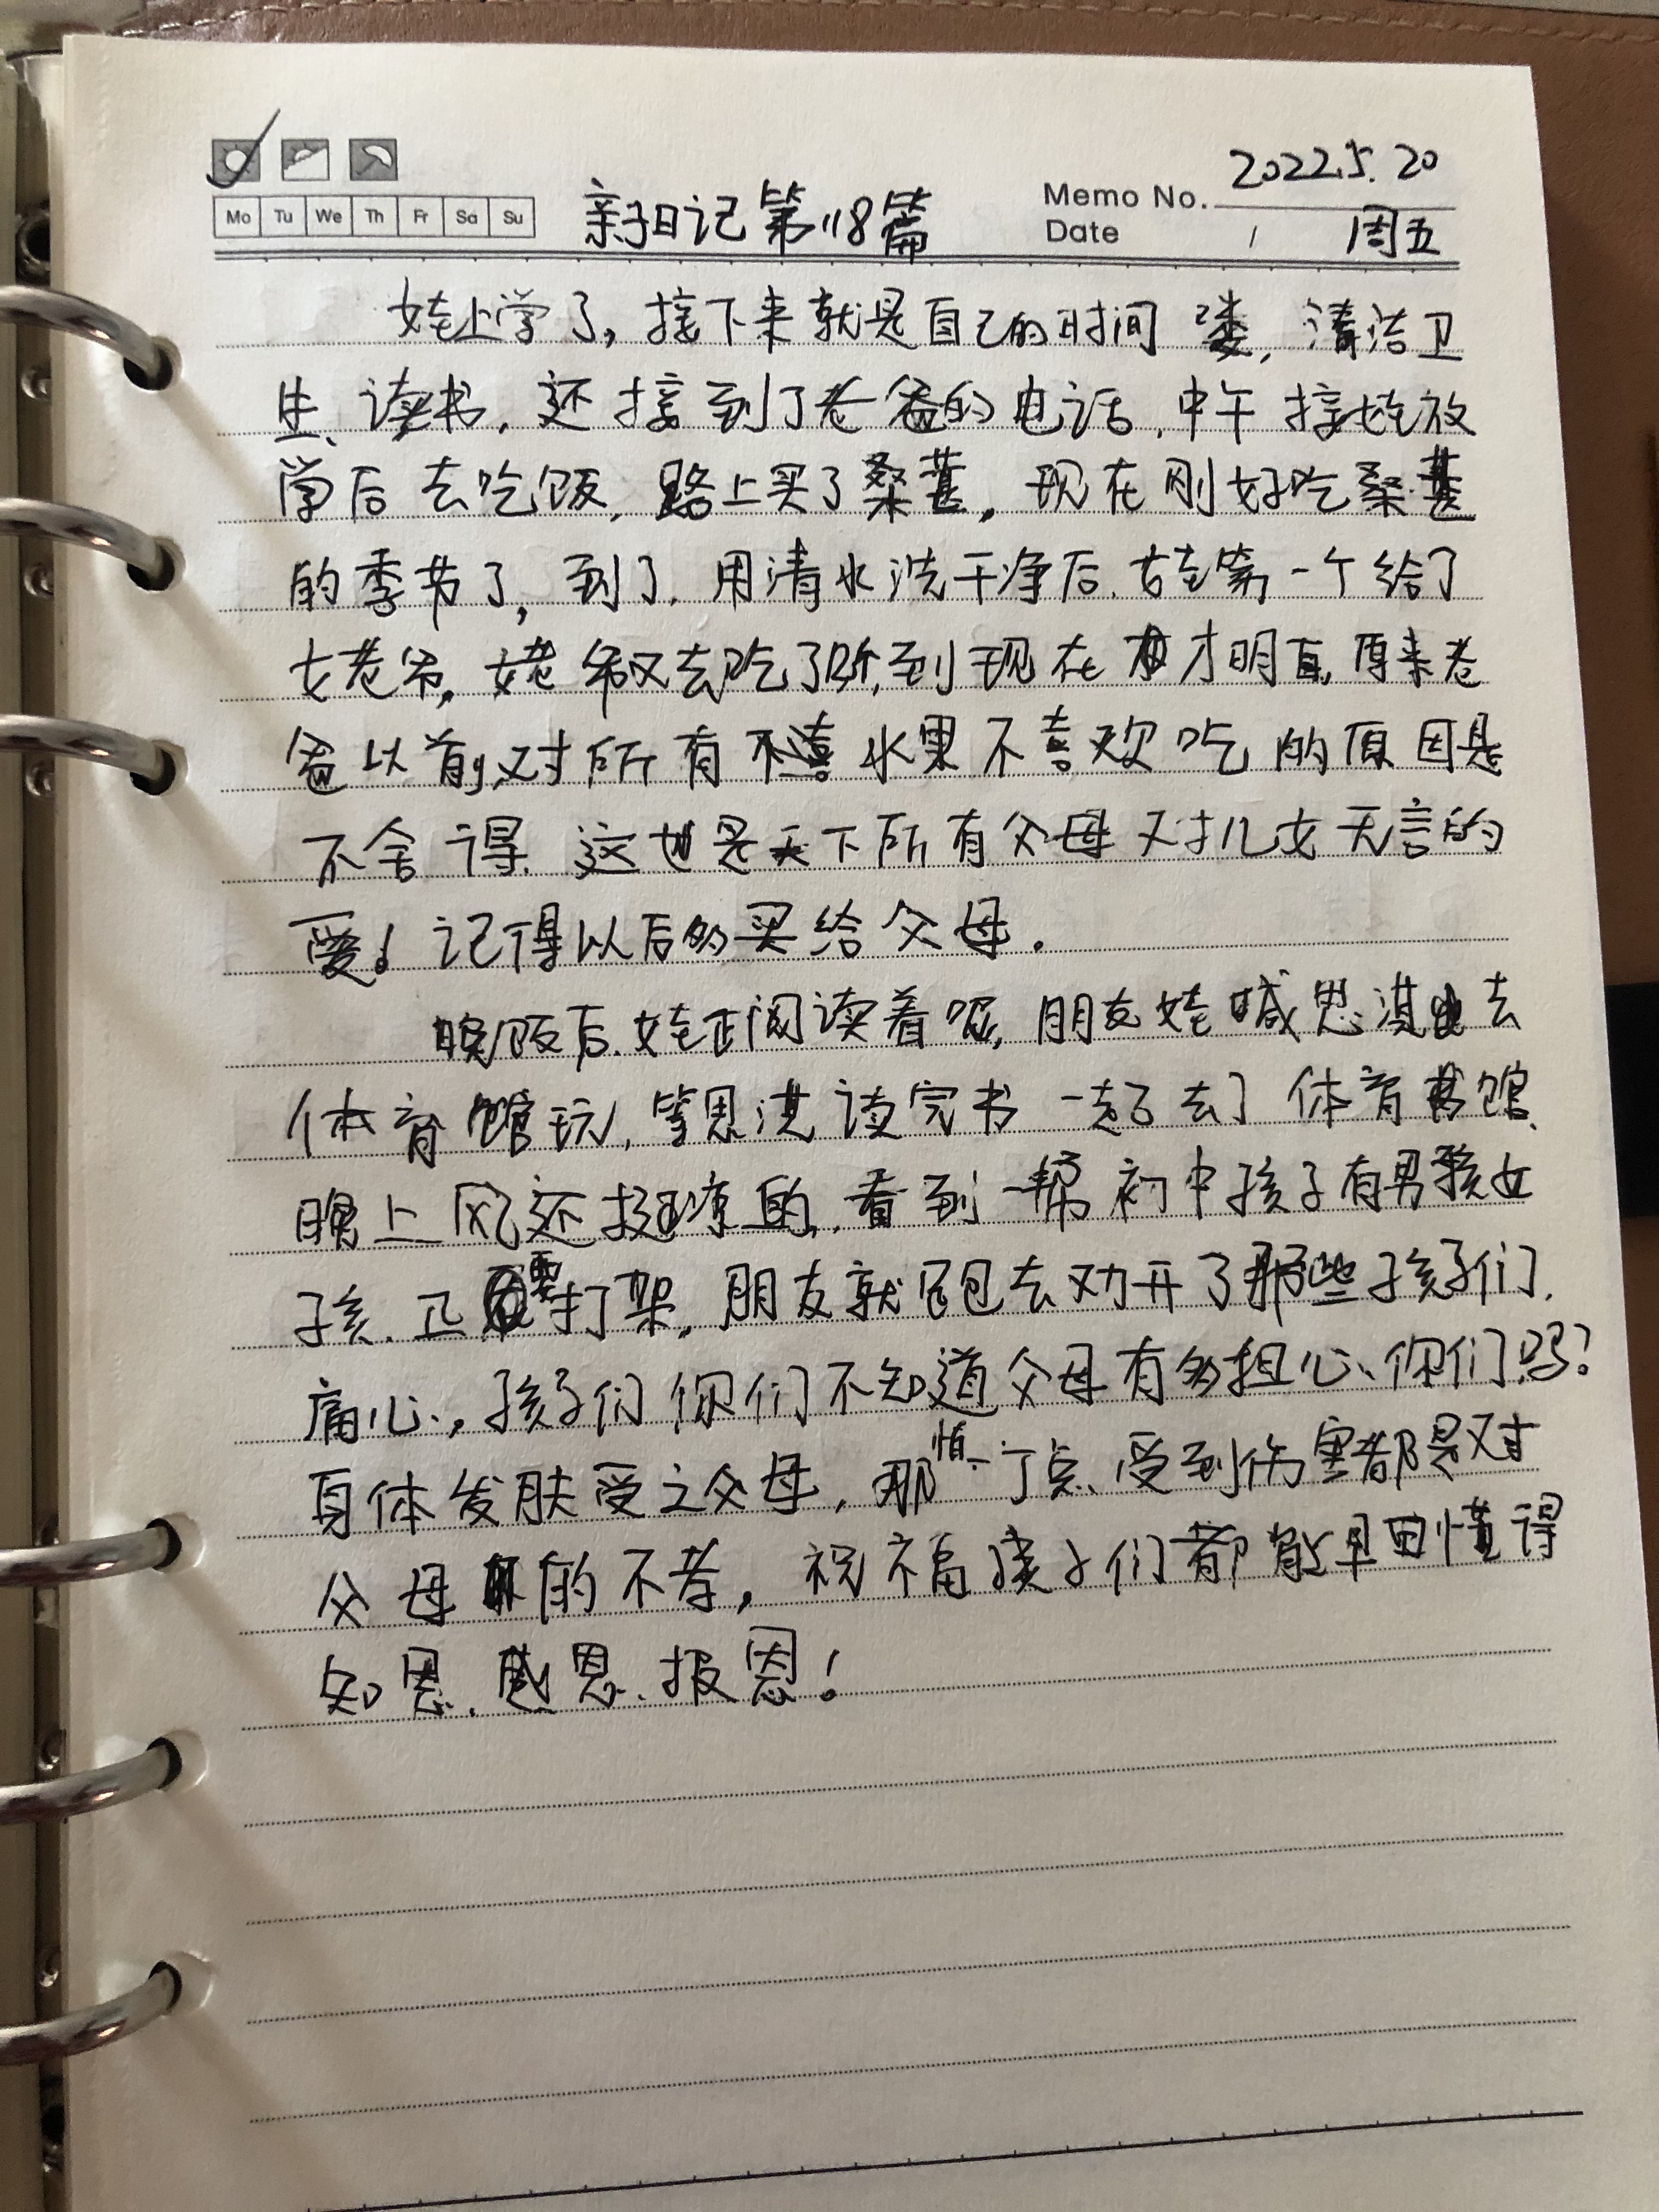 2022.5.20
Mo Tu We Th Fr Sa Su
亲子日记第118篇
Memo No.
Date / 周五
娃上学了，接下来就是自己的时间喽，清洁卫
生、读书，还接到了老爸的电话，中午接娃放
学后去吃饭，路上买了桑葚，现在刚好吃桑葚
的季节了，到了，用清水洗干净后，娃第一个给了
姥爷，姥爷又去吃了，到现在才明白，原来老
爸以前对所有水果不喜欢吃的原因是
不舍得，这也是天下所有父母对儿女无言的
爱！记得以后多买给父母．
晚饭后，娃正阅读着呢，朋友娃喊思淇出去
体育馆玩，等思淇读完书一起去了体育馆，
晚上风还挺凉的，看到一帮初中孩子有男孩女
孩，正要打架，朋友就跑去劝开了那些孩子们，
痛心，孩子们你们不知道父母有多担心你们吗？
身体发肤受之父母，那怕一丁点受到伤害都是对
父母的不孝，祝福孩子们都能早日懂得
知恩、感恩、报恩！